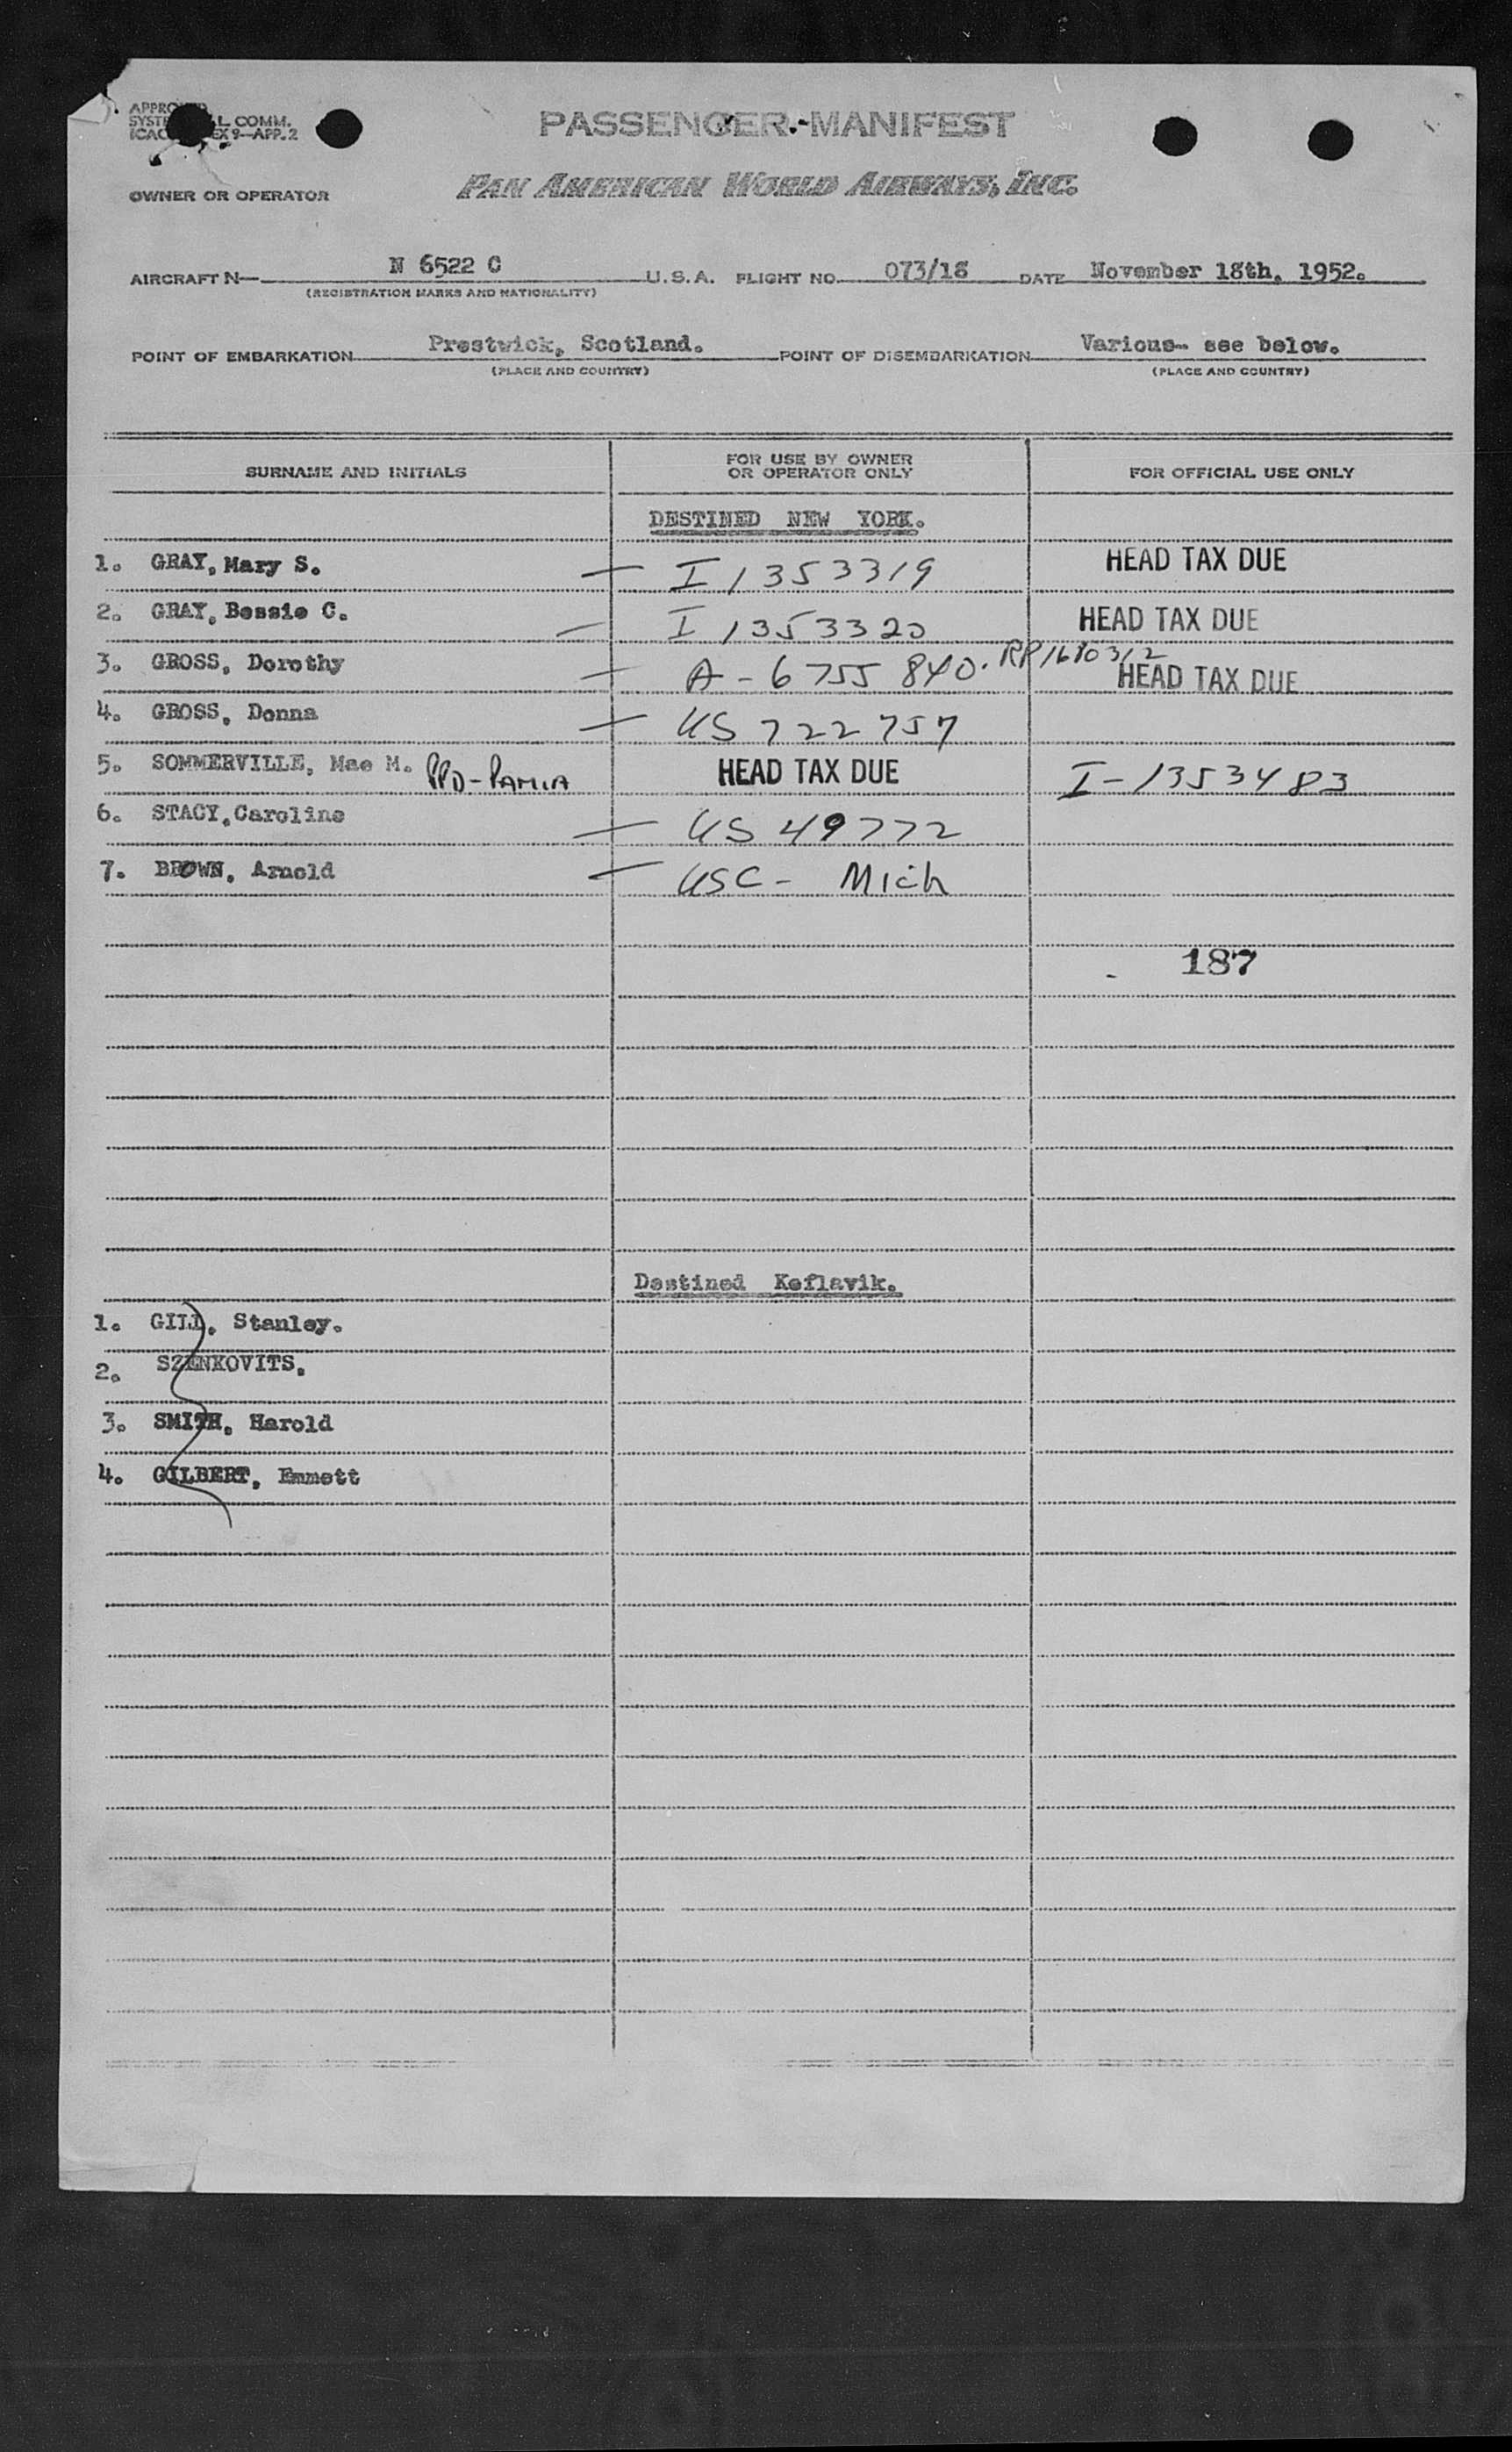 APPRO
SYSTE L. COMM.
ICAO EX 9—APP. 2
PASSENGER MANIFEST
OWNER OR OPERATOR
PAN AMERICAN WORLD AIRWAYS, INC.
AIRCRAFT N— N 6522 C U.S.A. FLIGHT NO. 073/18 DATE November 18th, 1952.
(REGISTRATION MARKS AND NATIONALITY)
POINT OF EMBARKATION Prestwick, Scotland. POINT OF DISEMBARKATION Various- see below.
(PLACE AND COUNTRY) (PLACE AND COUNTRY)
SURNAME AND INITIALS FOR USE BY OWNER OR OPERATOR ONLY FOR OFFICIAL USE ONLY
DESTINED NEW YORK.
1. GRAY, Mary S. — I 1353319 HEAD TAX DUE
2. GRAY, Bessie C. — I 1353320 HEAD TAX DUE
3. GROSS, Dorothy — A-6755840. RP 1680312 HEAD TAX DUE
4. GROSS, Donna — US 722757
5. SOMMERVILLE, Mae M. PPD- HEAD TAX DUE I-1353483
6. STACY, Caroline — US 49772
7. BROWN, Arnold — USC- Mich
187
Destined Keflavik.
1. GILL, Stanley.
2. SZENKOVITS.
3. SMITH, Harold
4. GILBERT, Emmett